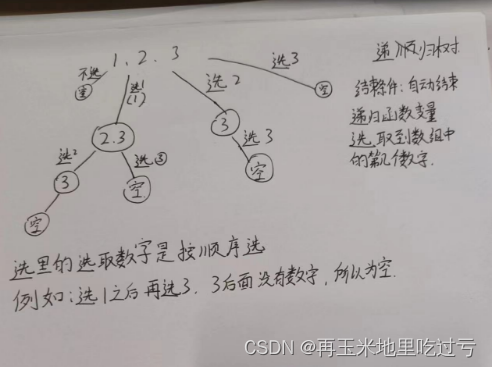 1. 2. 3
不选
空
选1
(1)
选2
选3
空
2.3
3
选3
空
选2
选③
3
空
空
递归顺归树
结束条件: 自动结束
递归函数变量
选取到数组中
的第几个数字.
选里的选取数字是按顺序选
例如: 选1之后再选3. 3后面没有数字, 所以为空.
CSDN @再玉米地里吃过亏